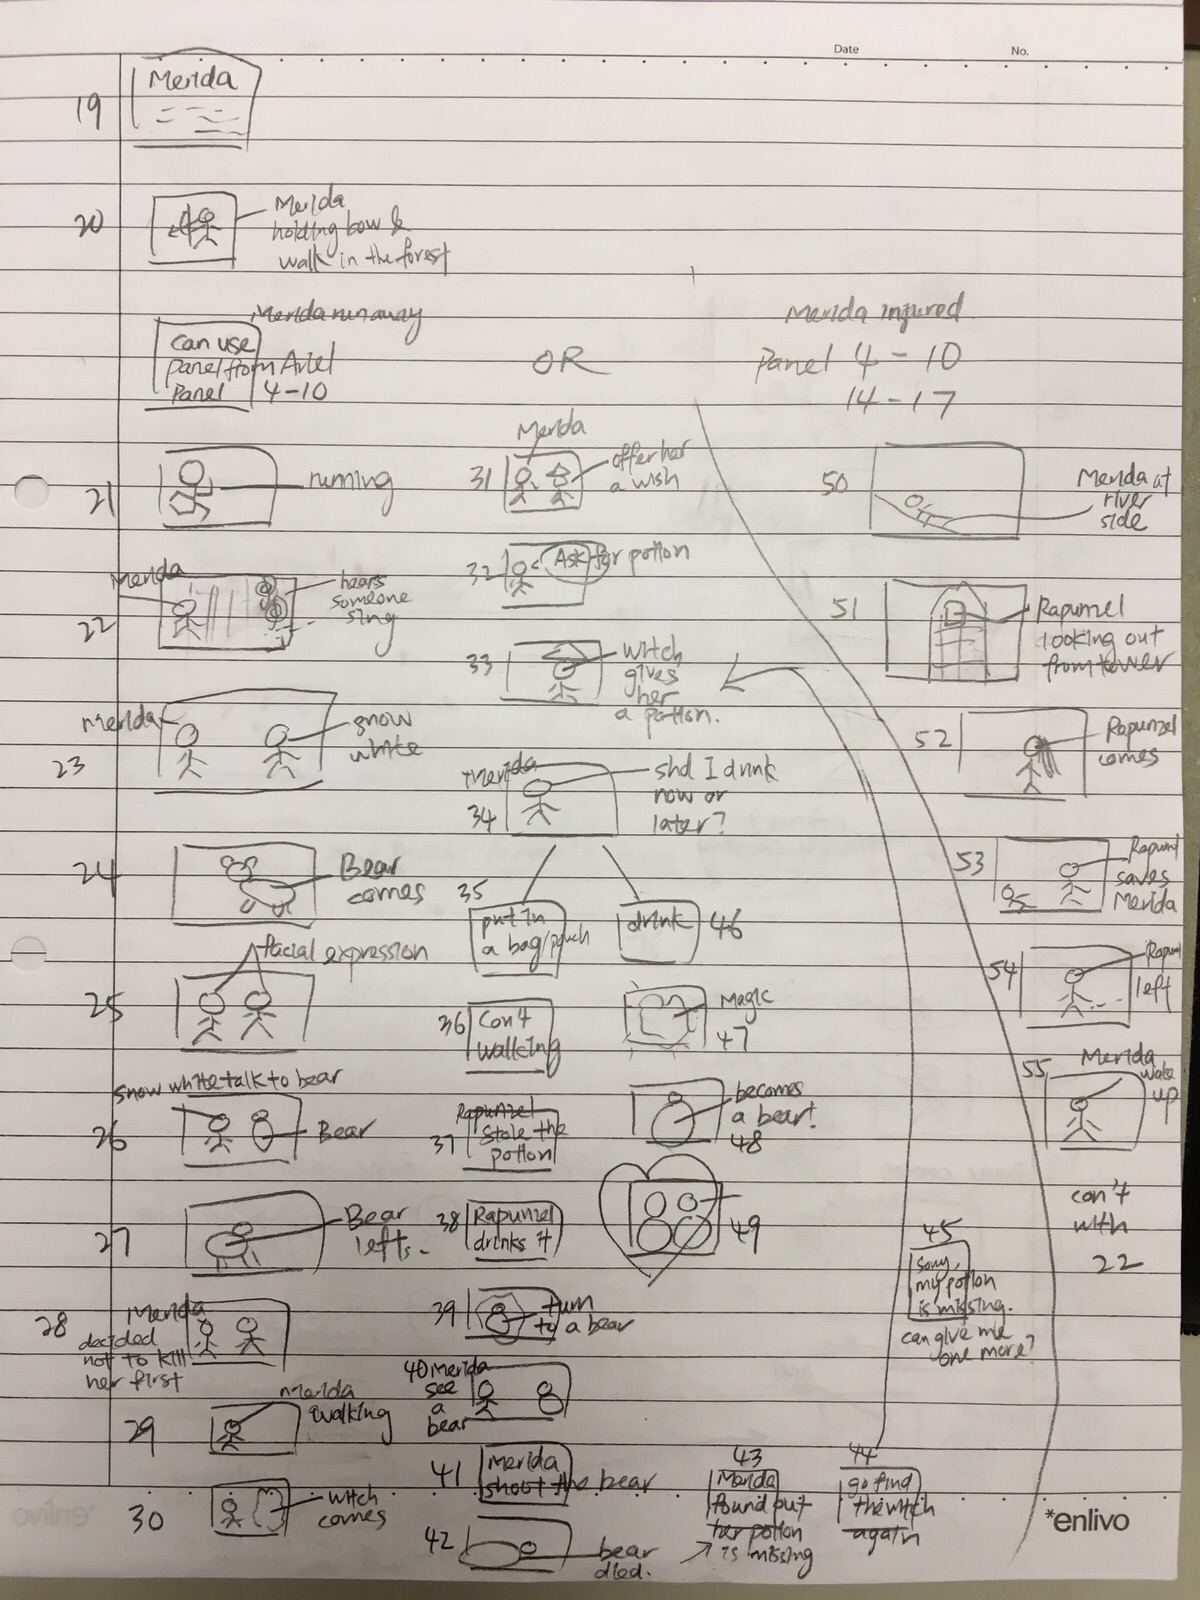 Date
No.
19
Merida
20
Merida
holding bow &
walk in the forest
Merida run away
can use
panel from Ariel
Panel 4-10
OR
Merida injured
Panel 4-10
14-17
21
running
22
Merida
hears
someone
sing
23
Merida
snow
white
24
Bear
comes
25
facial expression
26
snow white talk to bear
Bear
27
Bear
lefts.
28
Merida
decided
not to kill
her first
29
Merida
walking
30
witch
comes
31
Merida
offer her
a wish
32
Ask for potion
33
witch
gives
her
a potion.
34
Merida
shd I drink
now or
later?
35
put in
a bag/pouch
36
Con't
walking
37
Rapunzel
stole the
potion
38
Rapunzel
drinks it
39
turn
to a bear
40 Merida
see
a
bear
41
Merida
shoot the bear
42
bear
died.
43
Merida
found out
her potion
is missing
44
go find
the witch
again
45
Sorry,
my potion
is missing.
can give me
one more?
drink
46
Magic
47
becomes
a bear!
48
49
50
Merida at
river
side
51
Rapunzel
looking out
from tower
52
Rapunzel
comes
53
Rapunzel
saves
Merida
54
left
55
Merida
wake
up
con't
with
22
*enlivo